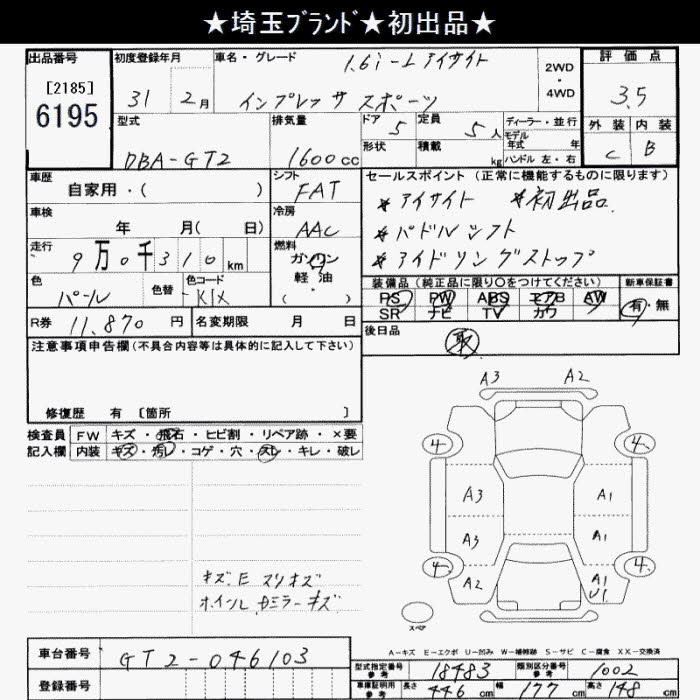 ★埼玉ﾌﾞﾗﾝﾄﾞ★初出品★
出品番号
[2185]
6195
初度登録年月
31 2月
車名・グレード
1.6i-L アイサイト
インプレッサ スポーツ
2WD
・
4WD
評価点
3.5
外装 内装
C B
型式
DBA-GT2
排気量
1600cc
ドア 5
定員 5人
形状
積載 kg
ディーラー・並行
モデル
年式 年
ハンドル 左・右
車歴
自家用・( )
シフト
FAT
セールスポイント (正常に機能するものに限ります)
* アイサイト *初出品
* パドルシフト
* アイドリングストップ
車検
年 月( 日)
冷房
AAC
走行
9万0千310km
燃料
ガソリン
軽・油
( )
色
パール
色替
色コード
K1X
装備品 (純正品に限り○をつけてください)
PS PW ABS エアB AW
SR ナビ TV カワ
新車保証書
有・無
R券 11,870円
名変期限 月 日
後日品
取
注意事項申告欄(不具合内容等は具体的に記入して下さい)
修復歴 有 [箇所 ]
検査員
記入欄
FW キズ・飛石・ヒビ割・リペア跡・×要
内装 キズ・汚レ・コゲ・穴・スレ・キレ・破レ
A3 A2
4 4
A3 A1
A3 A1
4 4
A2 A1
U1
スペア
キズ.E スリキズ
ホイール ドミラーキズ
A－キズ E－エクボ U－凹み W－補修跡 S－サビ C－腐食 XX－交換済
車台番号
GT2-046103
登録番号
型式指定番号
参考
18483
類別区分番号
参考
1002
車庫証明用
参考
長さ 446cm 幅 177cm 高さ 148cm